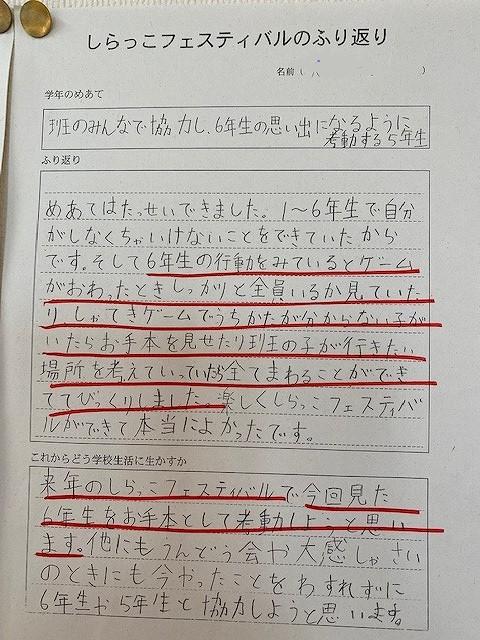 しらっこフェスティバルのふり返り
名前（　　　）
学年のめあて
班のみんなで協力し、6年生の思い出になるように
考動する5年生
ふり返り
めあてはたっせいできました。1〜6年生で自分
がしなくちゃいけないことをできていたから
です。そして6年生の行動をみているとゲーム
がおわったときしっかりと全員いるか見ていた
り、しゃてきゲームでうちかたが分からない子が
いたらお手本を見せたり班の子が行きたい
場所を考えていっていたら全てまわることができ
ててびっくりしました。楽しくしらっこフェスティバ
ルができて本当によかったです。
これからどう学校生活に生かすか
来年のしらっこフェスティバルで今回見た
6年生をお手本として考動しようと思い
ます。他にもうんどう会や大感しゃさい
のときにも今やったことをわすれずに
6年生が5年生と協力しようと思います。